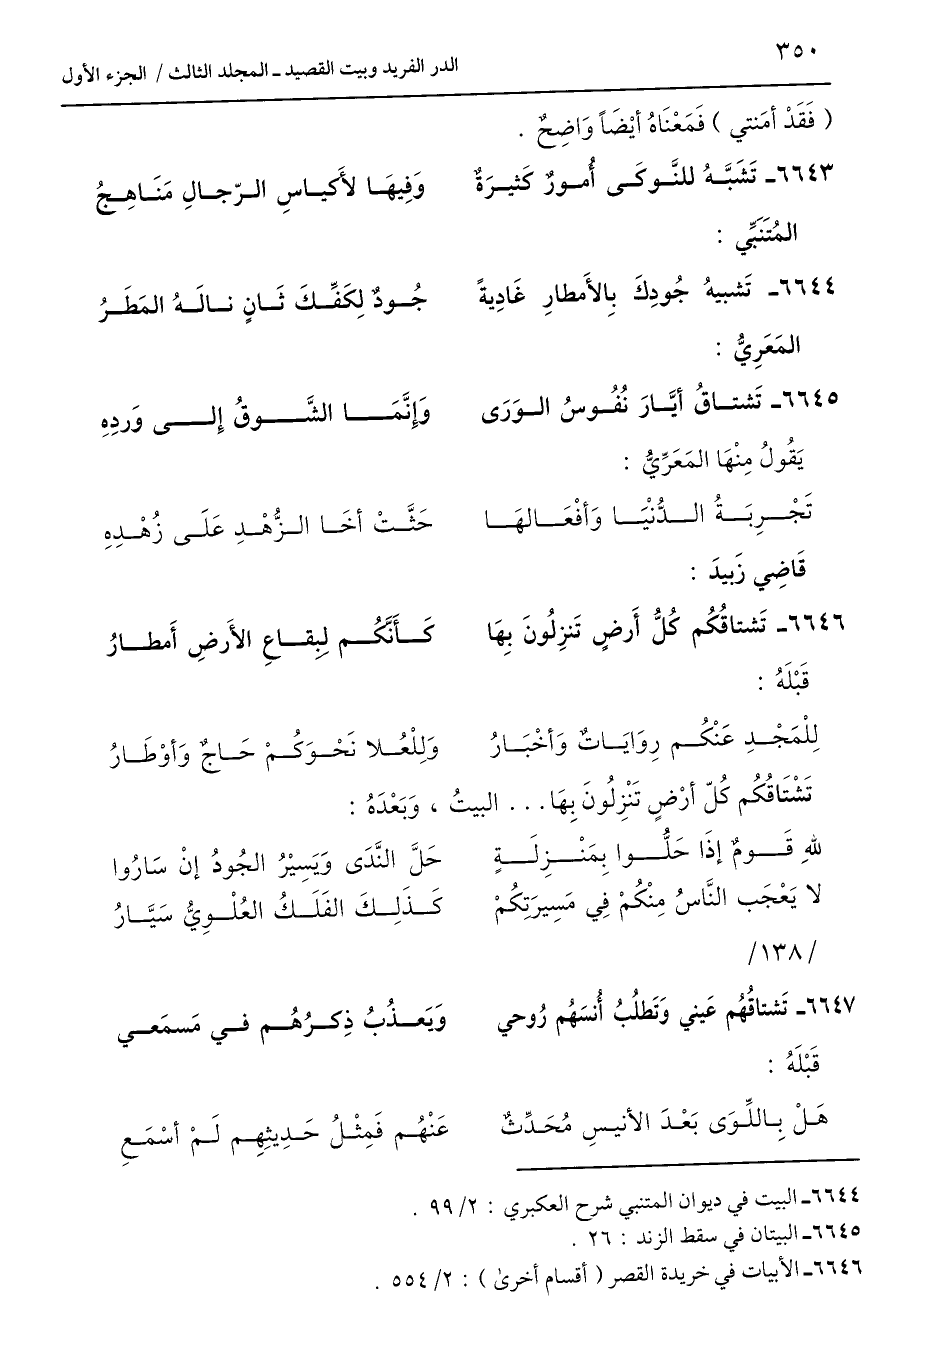 ٣٥٠
الدر الفريد وبيت القصيد ـ المجلد الثالث / الجزء الأول
( فَقَدْ أمَنتي ) فَمَعْنَاهُ أيْضَاً وَاضِحٌ .
٦٦٤٣ـ تَشَبَّهُ للنَّوكَى أُمورٌ كَثيرَةٌ وَفِيهَا لأَكياسِ الرّجالِ مَنَاهِجُ
المُتَنَبِّي :
٦٦٤٤ـ تَشبيهُ جُودِكَ بِالأَمطارِ غَاديةً جُودٌ لِكَفِّكَ ثَانٍ نالَهُ المَطَرُ
المَعَرِيُّ :
٦٦٤٥ـ تَشتاقُ أيَّارَ نُفُوسُ الوَرَى وَإنَّمَا الشَّوقُ إلى وَردِهِ
يَقُولُ مِنْهَا المَعَرِّيُّ :
تَجْرِبَةُ الدُّنْيَا وَأفْعَالهَا حَثَّتْ أخَا الزُّهْدِ عَلَى زُهْدِهِ
قَاضِي زَبيدَ :
٦٦٤٦ـ تَشتاقُكُم كُلُّ أَرضٍ تَنزِلُونَ بِهَا كَأَنَّكُم لِبقاعِ الأَرضِ أَمطارُ
قَبْلَهُ :
لِلْمَجْدِ عَنْكُم رِوَايَاتٌ وَأخْبَارُ وَلِلْعُلا نَحْوَكُمْ حَاجٌ وَأوْطَارُ
تَشْتَاقُكُم كُلّ أرْضٍ تَنْزِلُونَ بِهَا... البيتُ ، وَبَعْدَهُ :
للهِ قَومٌ إذَا حَلُّوا بِمَنْزِلَةٍ حَلَّ النَّدَى وَيَسِيْرُ الجُودُ إنْ سَارُوا
لا يَعْجَب النَّاسُ مِنْكُمْ فِي مَسِيرَتِكُمْ كَذَلِكَ الفَلَكُ العُلْوِيُّ سَيَّارُ
/١٣٨/
٦٦٤٧ـ تَشتاقُهُم عَيني وَتَطلُبُ أُنسَهُم رُوحي وَيَعذُبُ ذِكرُهُم في مَسمَعي
قَبْلَهُ :
هَلْ بِاللِّوَى بَعْدَ الأنيسِ مُحَدِّثٌ عَنْهُم فَمِثْلُ حَديثِهِم لَمْ أسْمَعِ
٦٦٤٤ـ البيت في ديوان المتنبي شرح العكبري : ٢/ ٩٩ .
٦٦٤٥ـ البيتان في سقط الزند : ٢٦ .
٦٦٤٦ـ الأبيات في خريدة القصر ( أقسام أخرىٰ ) : ٢/ ٥٥٤ .